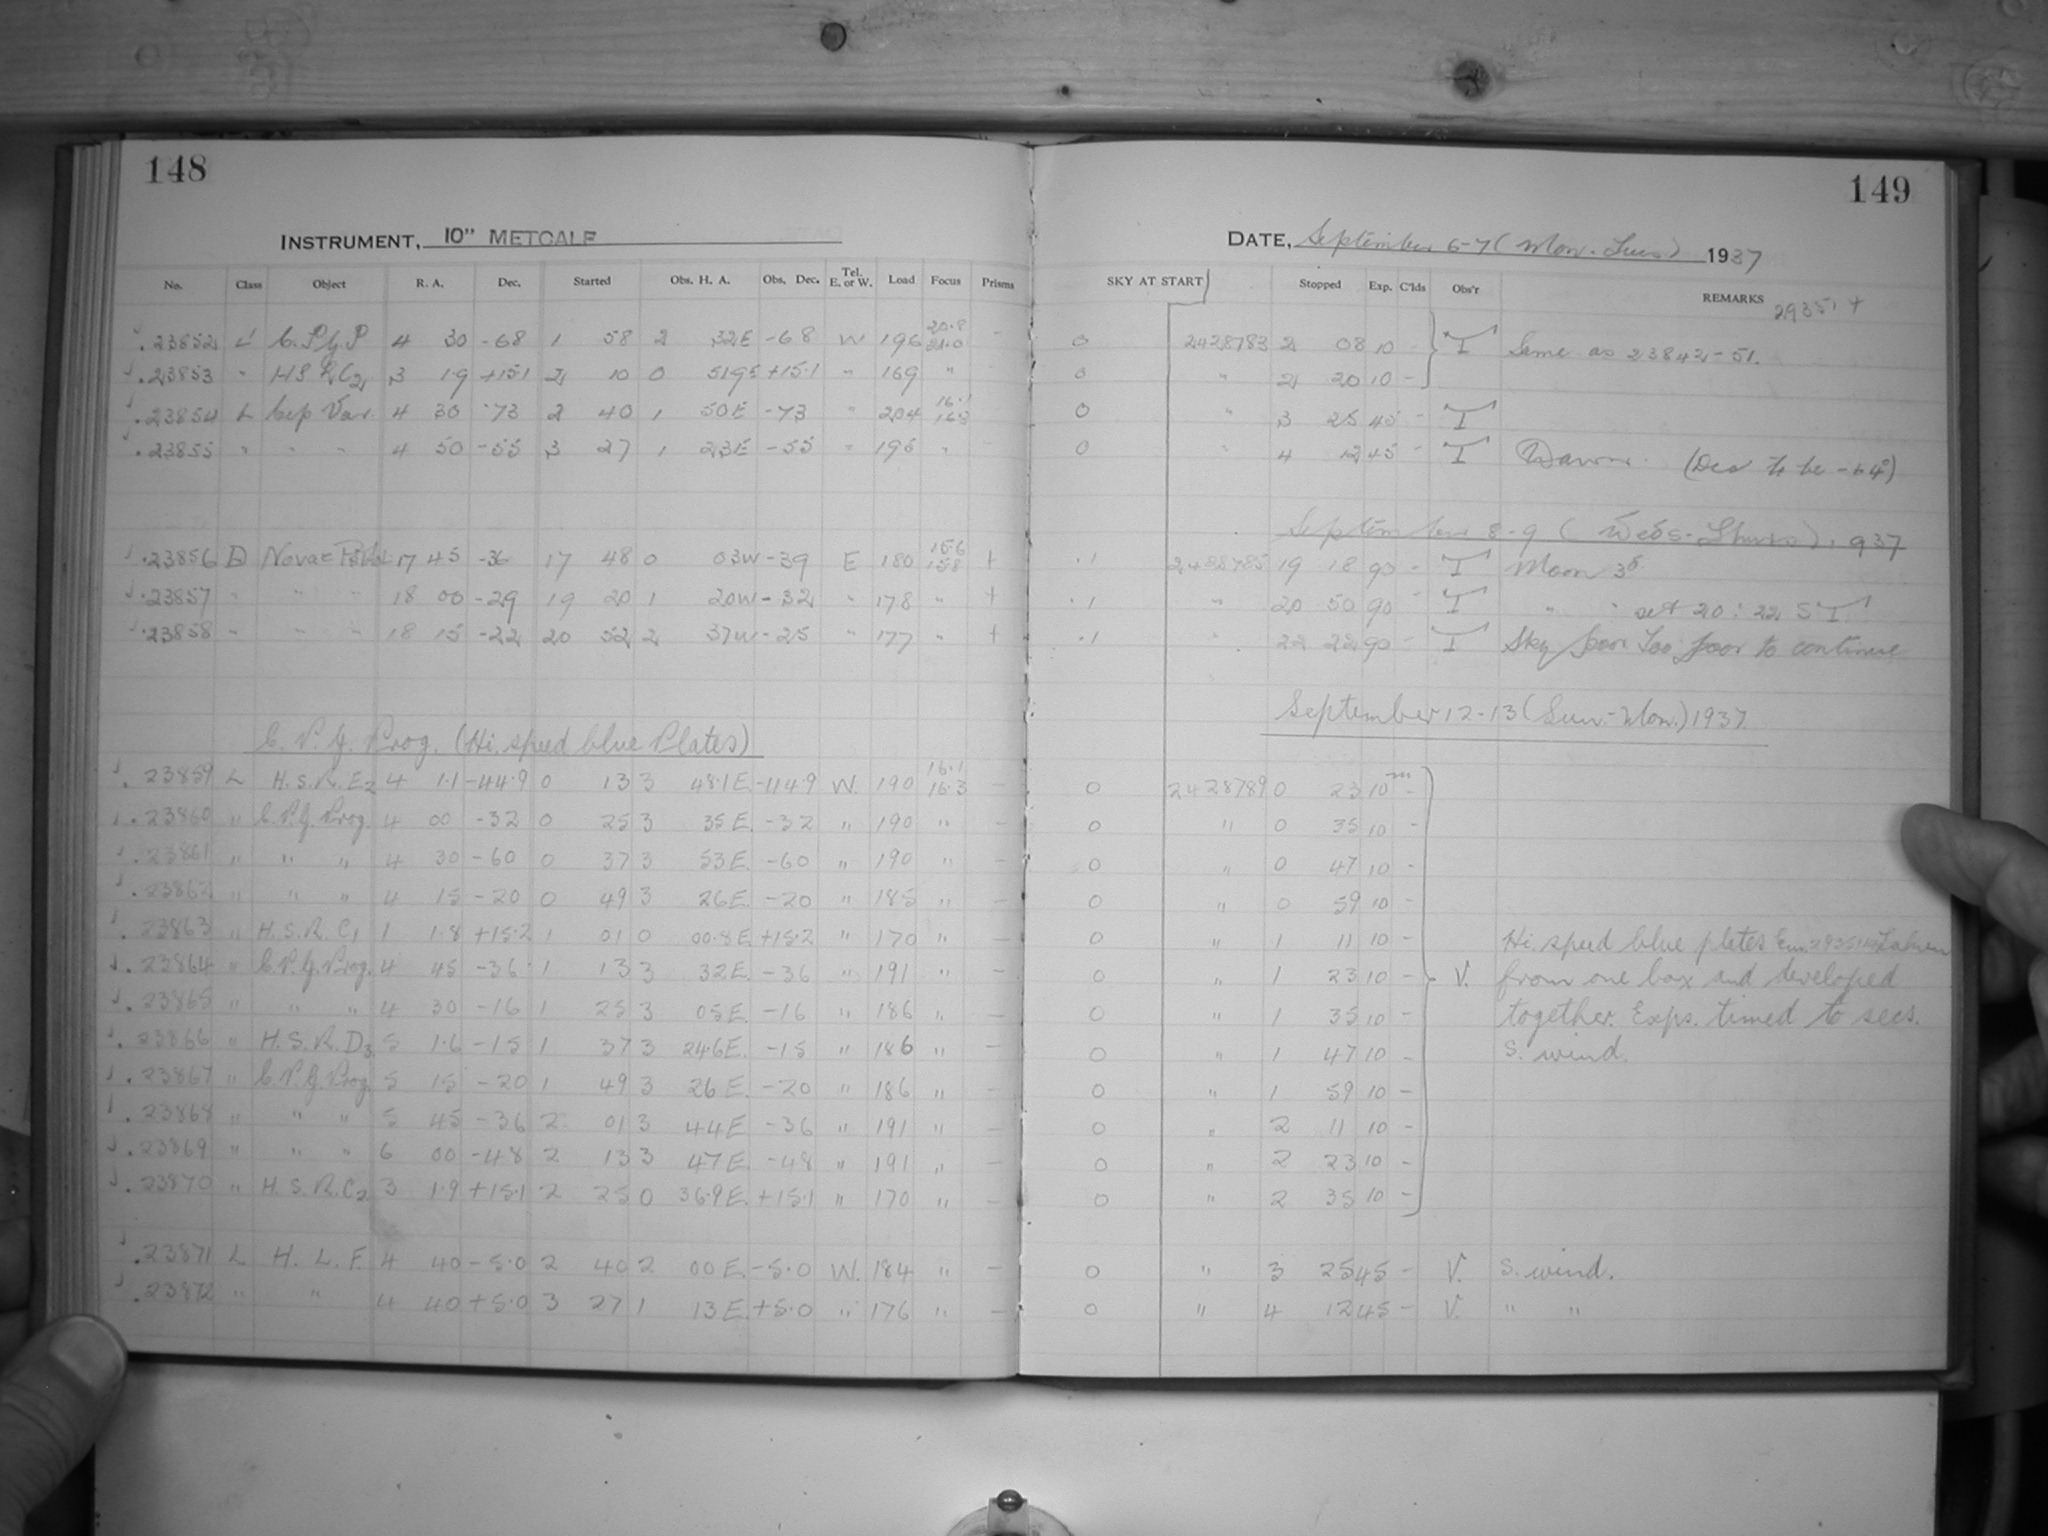 148
149
INSTRUMENT, 10" METCALF
DATE, September 6-7 (Mon.-Tues) 1937
No. Class Object R. A. Dec. Started Obs. H. A. Obs. Dec. Tel. E. or W. Load Focus Prisms SKY AT START Stopped Exp. C'lds Obs'r REMARKS
20.8
23852 L C.P.G.P 4 30 -68 1 58 2 32E -68 W 196 21.0 - 0 2428783 2 08 10 - T Same as 23842-51.
23853 " 3 1.9 +15.1 2 10 0 +15.1 " 169 " - 0 " 2 20 10 -
16.1
23854 L Cep Var. 4 30 -73 2 40 1 50E -73 " 204 16.3 0 " 3 25 45 - T
23855 " " " 4 50 -55 3 27 1 23E -55 " 195 " 0 " 4 12 45 - T Dawn. (Dec to be -64°)
September 8-9 (Weds-Thurs), 1937
15.6
23856 D Novae 17 45 -36 17 48 0 03W -39 E 180 15.8 + .1 2428785 19 18 90 - T Moon
23857 " " " 18 00 -29 19 20 1 20W -32 " 178 " + .1 " 20 50 90 - T " set 20:22 ST
23858 " " " 18 15 -22 20 52 2 37W -25 " 177 " + .1 " 22 22 90 - T Sky poor Too poor to continue
September 12-13 (Sun.-Mon.) 1937
C. P. G. Prog. (Hi. speed blue Plates)
16.1
23859 L H.S.R. E2 4 1.1 -44.9 0 13 3 48.1E. -44.9 W. 190 16.3 - 0 2428789 0 23 10m -
23860 " C.P.G. Prog. 4 00 -32 0 25 3 35E. -32 " 190 " - 0 " 0 35 10 -
23861 " " " 4 30 -60 0 37 3 53E. -60 " 190 " - 0 " 0 47 10 -
23862 " " " 4 15 -20 0 49 3 26E. -20 " 185 " - 0 " 0 59 10 -
23863 " H.S.R. C1 1 1.8 +15.2 1 01 0 00.8E +15.2 " 170 " - 0 " 1 11 10 - Hi. speed blue plates taken
23864 " C.P.G. Prog. 4 45 -36 1 13 3 32E. -36 " 191 " - 0 " 1 23 10 - V. from one box and developed
23865 " " " 4 30 -16 1 25 3 05E. -16 " 186 " - 0 " 1 35 10 - together. Exps. timed to secs.
23866 " H.S.R. D3 5 1.6 -15 1 37 3 24.6E. -15 " 186 " - 0 " 1 47 10 - S. wind.
23867 " C.P.G. Prog. 5 15 -20 1 49 3 26E. -20 " 186 " - 0 " 1 59 10 -
23868 " " " 5 45 -36 2 01 3 44E -36 " 191 " - 0 " 2 11 10 -
23869 " " " 6 00 -48 2 13 3 47E. -48 " 191 " - 0 " 2 23 10 -
23870 " H.S.R. C2 3 1.9 +15.1 2 25 0 36.9E. +15.1 " 170 " - 0 " 2 35 10 -
23871 L H. L. F. 4 40 -5.0 2 40 2 00E. -5.0 W. 184 " - 0 " 3 25 45 - V. S. wind.
23872 " " 4 40 +5.0 3 27 1 13E. +5.0 " 176 " - 0 " 4 12 45 - V. " "